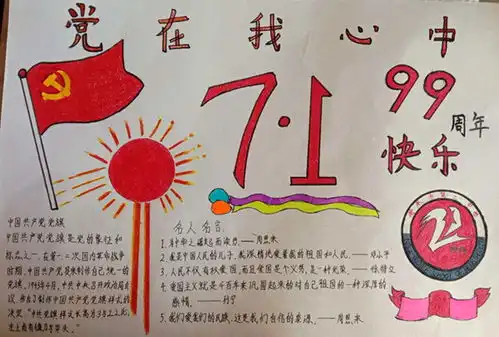 党在我心中
7·1
99
周年
快乐
中国共产党党旗
中国共产党党旗是党的象征和
标志之一,在第一、二次国内革命战争
时期,中国共产党是制作自己统一的
党旗,1943年4月,中共中央召开政治局会
议,并由了制作中国共产党党旗样式的
决定:"中共党旗样式长高为3比2之比,
左上角有镰刀斧头。"
名人名言:
1. 为中华之崛起而读书。——周恩来
2. 我是中国人民的儿子,我深情地爱着我的祖国和人民。——邓小平
3. 人民不仅有权爱国,而且爱国是个义务,是一种光荣。——徐特立
4. 爱国主义就是千百年来巩固起来的对自己祖国的一种深厚的
感情。——列宁
5. 我们爱我们的民族,这是我们自信的泉源。——周恩来